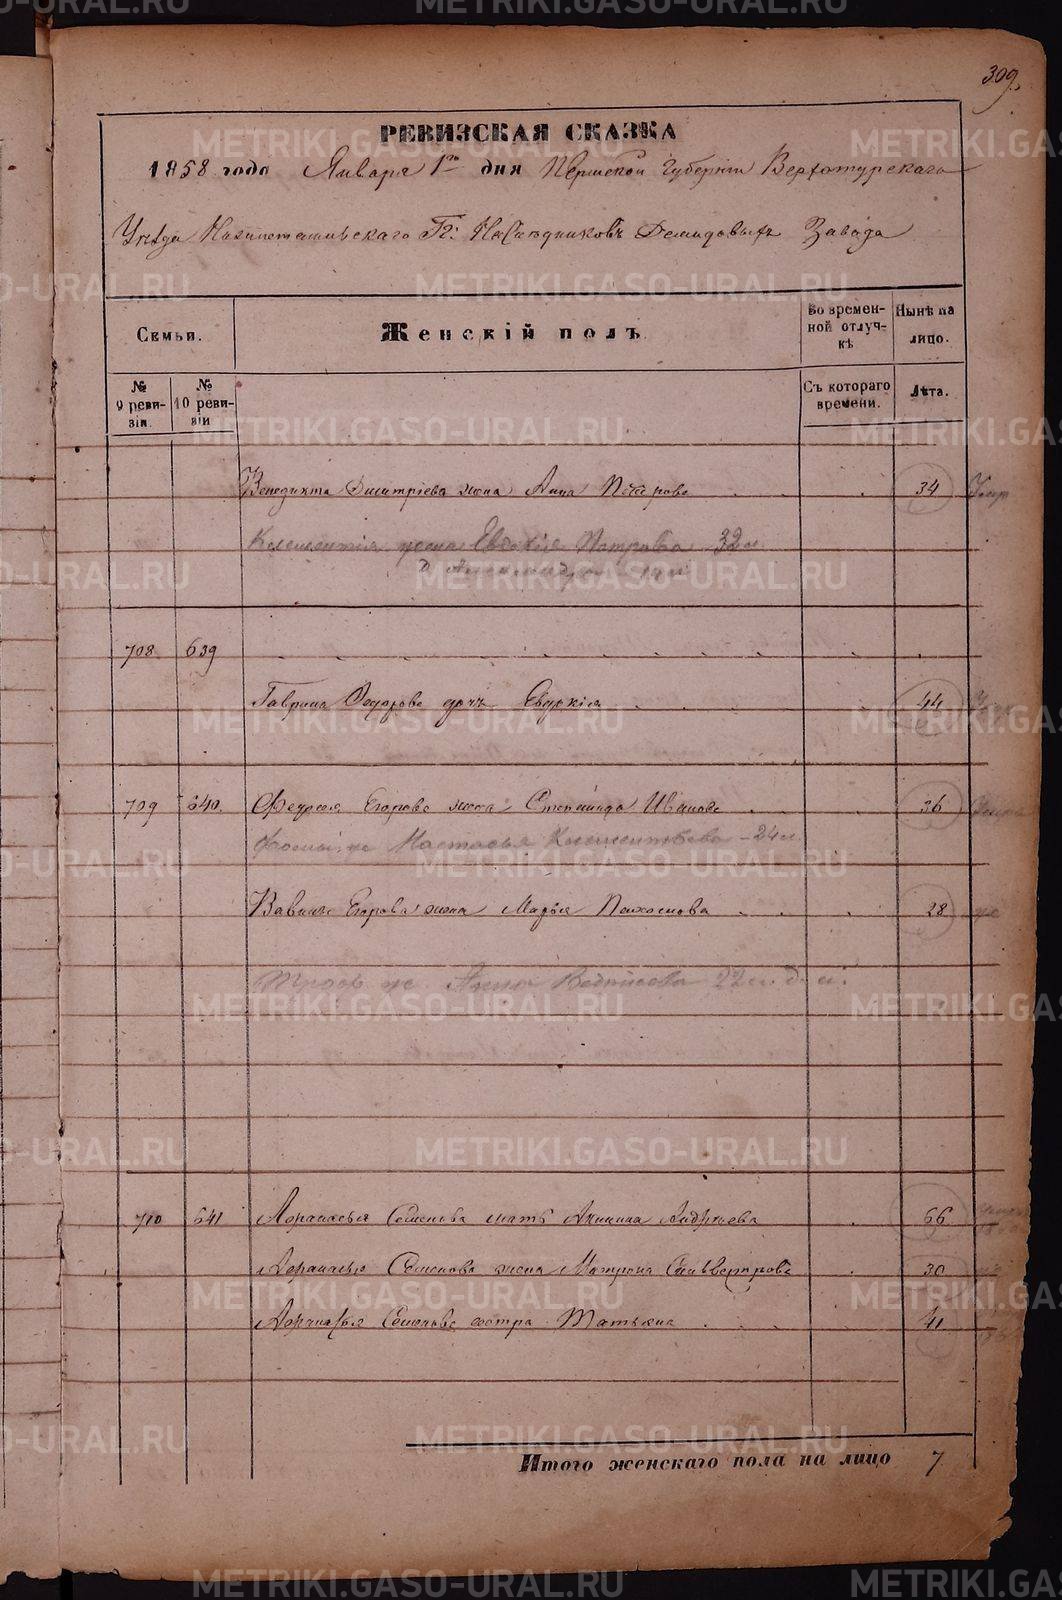 309.
РЕВИЗСКАЯ СКАЗКА
1858 года Января 1го дня Пермской Губернiи Верхотурского
Уѣзда Нижнетагильскаго Гг: Наслѣдниковъ Демидовыхъ Завода
Семьи.
Женскій полъ
Во временной отлучкѣ
Нынѣ на лицо.
№ 9 ревизіи.
№ 10 ревизіи
Съ котораго времени.
Лѣта.
Венедикта Дмитріева жена Анна Петрова 34
Клементія жена Евдокія Петрова 32 л.
д Александра
708 639
Гаврила Федорова дочь Евдокія 44
709 640. Егорова жена Степанида Иванова 36
Настасья Климентьева - 24 л
Вавилы Егорова жена Марья Пахомова 28
ж. Анна 22 л. д. л.
710 641 Афанасья Семенова мать Акилина Андреева 66
Афанасья Семенова жена Матрона Сильвестрова 30
Афанасья Семенова сестра Татьяна 41
Итого женскаго пола на лицо 7
METRIKI.GASO-URAL.RU